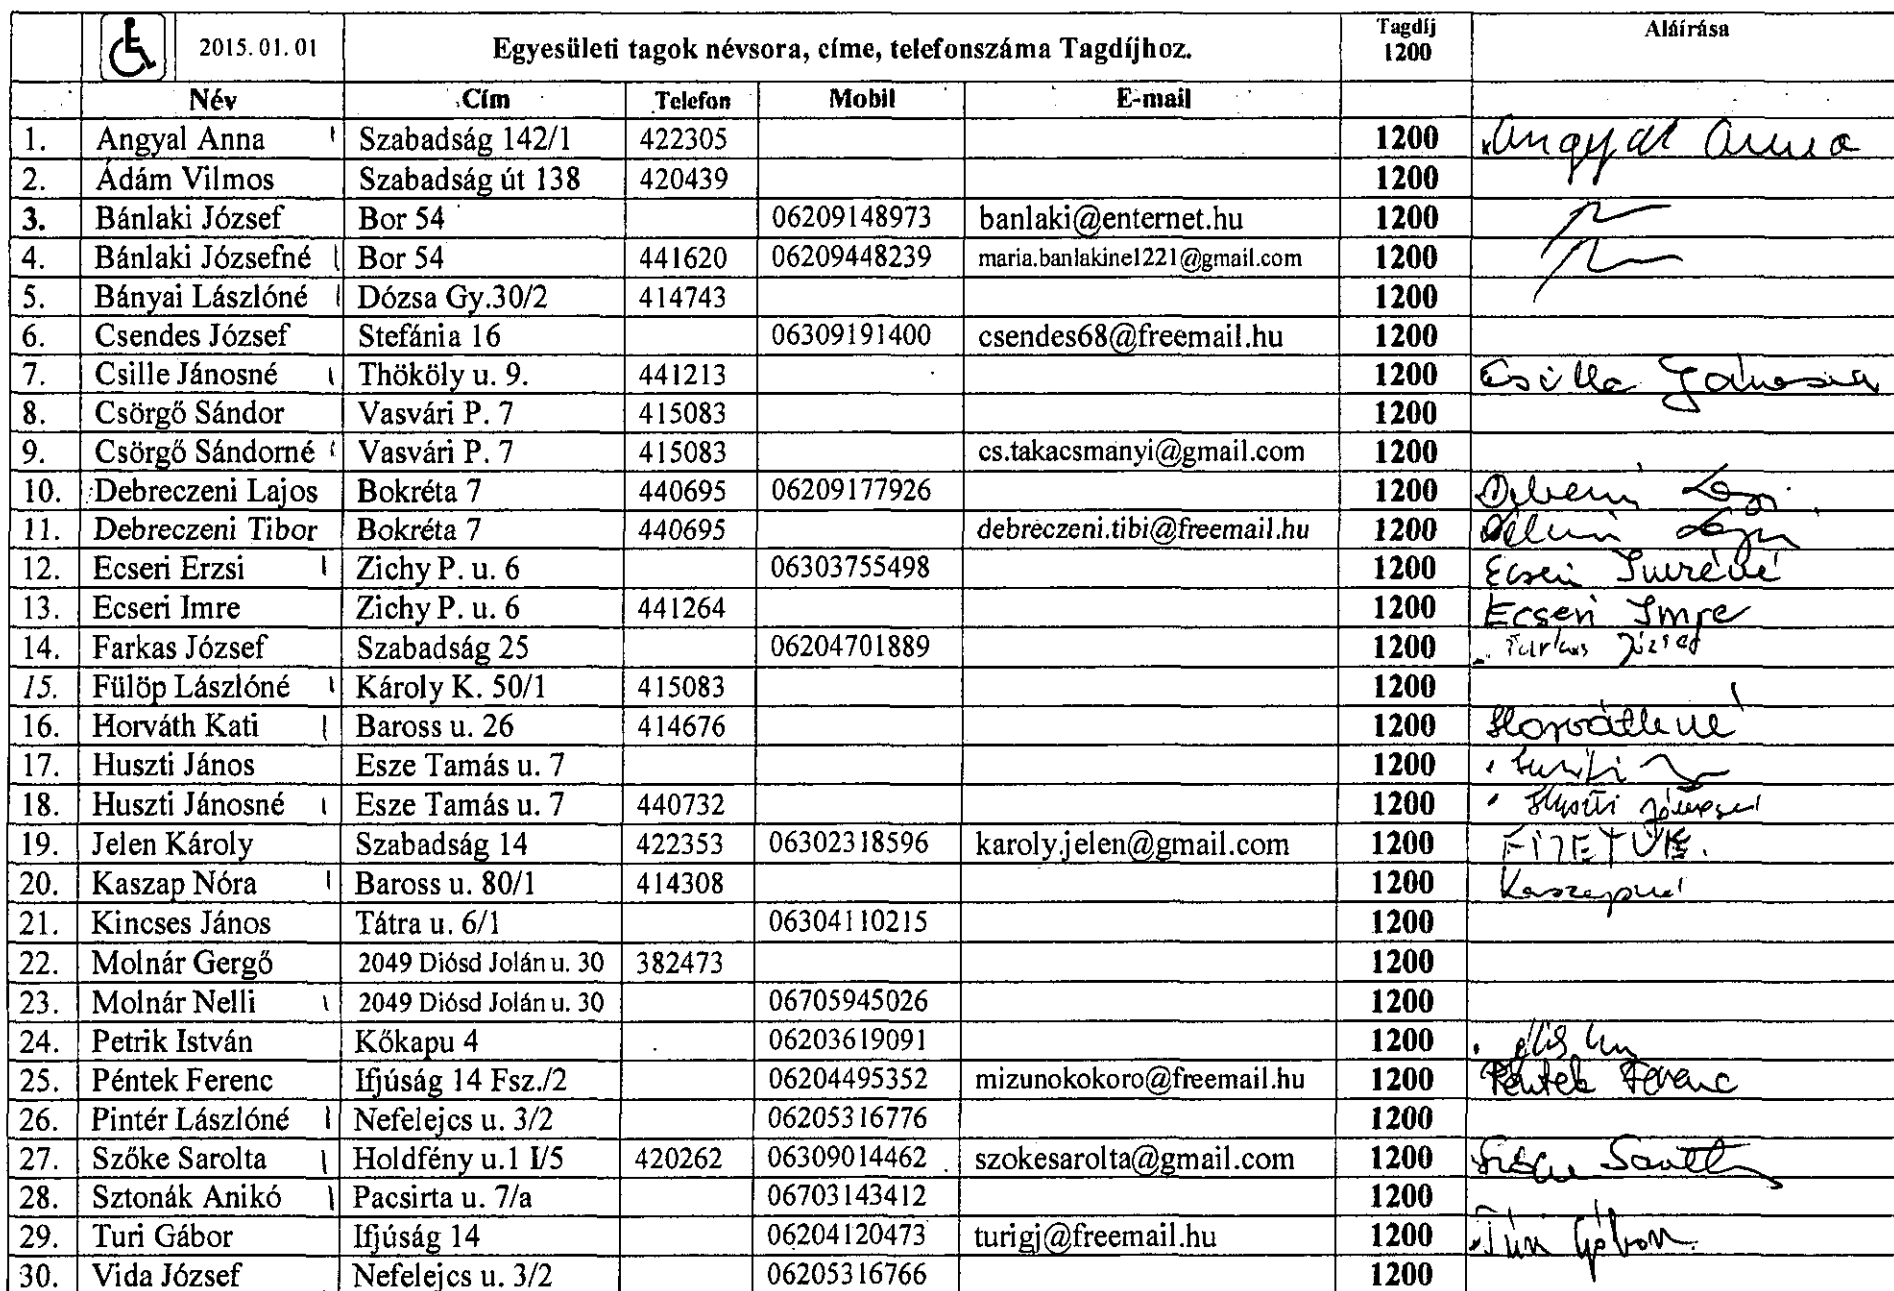 2015.01.01 Egyesületi tagok névsora, címe, telefonszáma Tagdíjhoz. Tagdíj 1200 Aláírása
Név Cím Telefon Mobil E-mail
1. Angyal Anna Szabadság 142/1 422305 1200 Angyal Anna
2. Ádám Vilmos Szabadság út 138 420439 1200
3. Bánlaki József Bor 54 06209148973 banlaki@enternet.hu 1200
4. Bánlaki Józsefné Bor 54 441620 06209448239 maria.banlakine1221@gmail.com 1200
5. Bányai Lászlóné Dózsa Gy.30/2 414743 1200
6. Csendes József Stefánia 16 06309191400 csendes68@freemail.hu 1200
7. Csille Jánosné Thököly u. 9. 441213 1200 Csille Jánosné
8. Csörgő Sándor Vasvári P. 7 415083 1200
9. Csörgő Sándorné Vasvári P. 7 415083 cs.takacsmanyi@gmail.com 1200
10. Debreczeni Lajos Bokréta 7 440695 06209177926 1200
11. Debreczeni Tibor Bokréta 7 440695 debreczeni.tibi@freemail.hu 1200
12. Ecseri Erzsi Zichy P. u. 6 06303755498 1200 Ecseri Imréné
13. Ecseri Imre Zichy P. u. 6 441264 1200 Ecseri Imre
14. Farkas József Szabadság 25 06204701889 1200 Farkas József
15. Fülöp Lászlóné Károly K. 50/1 415083 1200
16. Horváth Kati Baross u. 26 414676 1200 Horváthné
17. Huszti János Esze Tamás u. 7 1200 Huszti
18. Huszti Jánosné Esze Tamás u. 7 440732 1200 Huszti Jánosné
19. Jelen Károly Szabadság 14 422353 06302318596 karoly.jelen@gmail.com 1200 FIZETVE.
20. Kaszap Nóra Baross u. 80/1 414308 1200 Kaszapné
21. Kincses János Tátra u. 6/1 06304110215 1200
22. Molnár Gergő 2049 Diósd Jolán u. 30 382473 1200
23. Molnár Nelli 2049 Diósd Jolán u. 30 06705945026 1200
24. Petrik István Kőkapu 4 06203619091 1200
25. Péntek Ferenc Ifjúság 14 Fsz./2 06204495352 mizunokokoro@freemail.hu 1200 Péntek Ferenc
26. Pintér Lászlóné Nefelejcs u. 3/2 06205316776 1200
27. Szőke Sarolta Holdfény u.1 I/5 420262 06309014462 szokesarolta@gmail.com 1200 Szőke Sarolta
28. Sztonák Anikó Pacsirta u. 7/a 06703143412 1200
29. Turi Gábor Ifjúság 14 06204120473 turigj@freemail.hu 1200 Turi Gábor
30. Vida József Nefelejcs u. 3/2 06205316766 1200